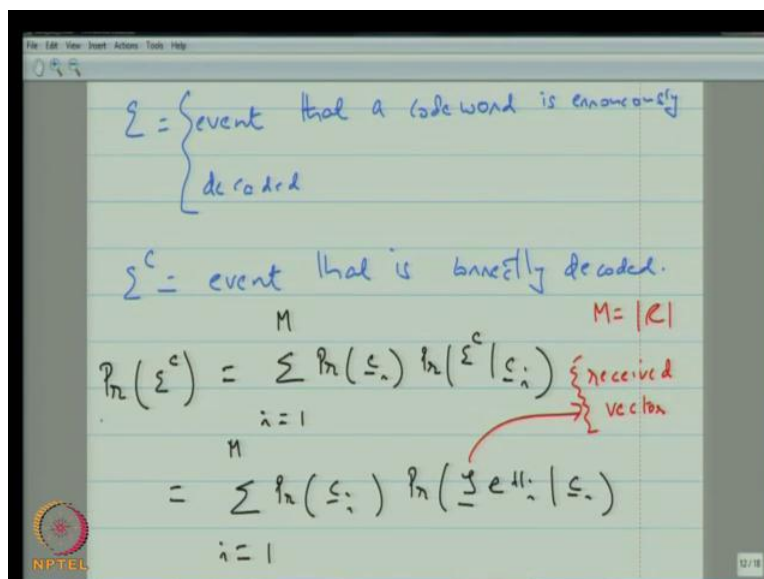 File Edit View Insert Actions Tools Help
ℰ = { event that a codeword is erroneously
decoded
ℰ^c = event that is correctly decoded.
M = |C|
Pr(ℰ^c) = ∑_{i=1}^{M} Pr(c_i) Pr(ℰ^c | c_i)
{ received
vector
= ∑_{i=1}^{M} Pr(c_i) Pr(y ∈ D_i | c_i)
NPTEL
12/18